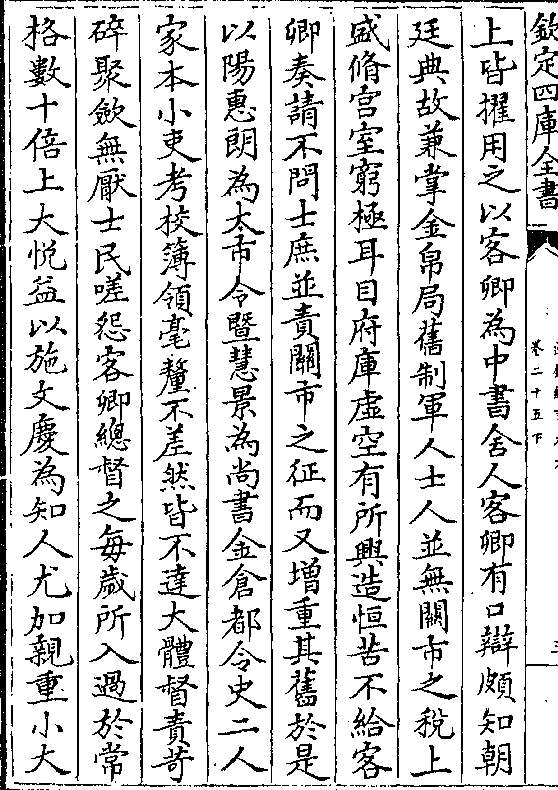 欽定四庫全書
卷二十五下
上皆擢用之以客卿為中書舍人客卿有口辯頗知朝
廷典故兼掌金帛局舊制軍人士人並無關市之稅上
盛脩宫室窮極耳目府庫虛空有所興造恒苦不給客
卿奏請不問士庶並責關市之征而又增重其舊於是
以陽惠朗為太市令暨慧景為尚書金倉都令史二人
家本小吏考校簿領毫釐不差然皆不達大體督責苛
碎聚斂無厭士民嗟怨客卿總督之每歲所入過於常
格數十倍上大悅益以施文慶為知人尤加親重小大